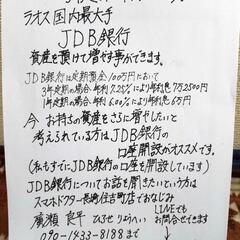 ラオス国内最大手
JDB銀行
資産を預けて増やす事ができます。
JDB銀行は定期預金100万円において
3年定期の場合、年利7.25%により年利息7万2500円
1年定期の場合、年利6.00%により年利息6万円
今お持ちの資産をさらに増やしたいと
考えられている方は、JDB銀行の
口座開設がオススメです。
(私もすでにJDB銀行の口座を開設しています)
JDB銀行についてお話を聞きたいという方は
スマホドクター長崎住吉町店でおなじみ
廣瀬 良平 ひろせりょうへい
LINEでも
お問合せできます
090-1433-8188まで